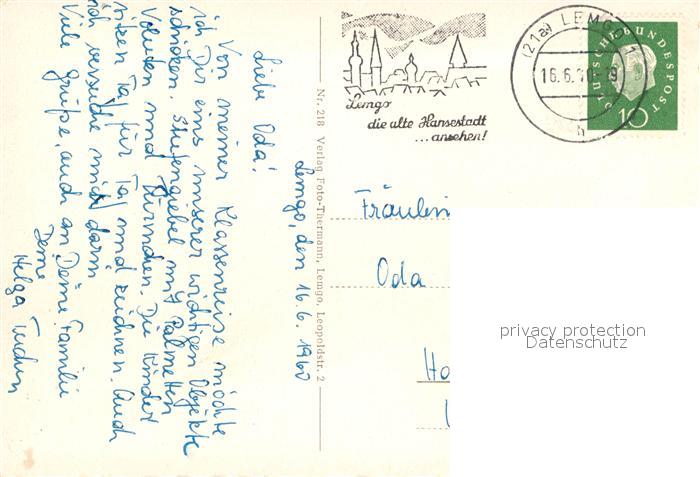 Lemgo, den 16.6.1960
Liebe Oda!
Von meiner Klassenreise möchte
ich Dir eins unserer wichtigen Objekte
schicken. Stufengiebel mit Palmetten
Voluten und Türmchen. Die Kinder
sitzen Tag für Tag und zeichnen. Auch
ich versuche mich darin
Viele Grüße, auch an Deine Familie
Deine
Helga
Nr. 218 Verlag Foto-Thermann, Lemgo, Leopoldstr. 2
Lemgo
die alte Hansestadt
...ansehen!
(21a) LEMGO 1
16.6.60-19
h
DEUTSCHE BUNDESPOST
10
Fräulein
Oda
Ho
privacy protection
Datenschutz